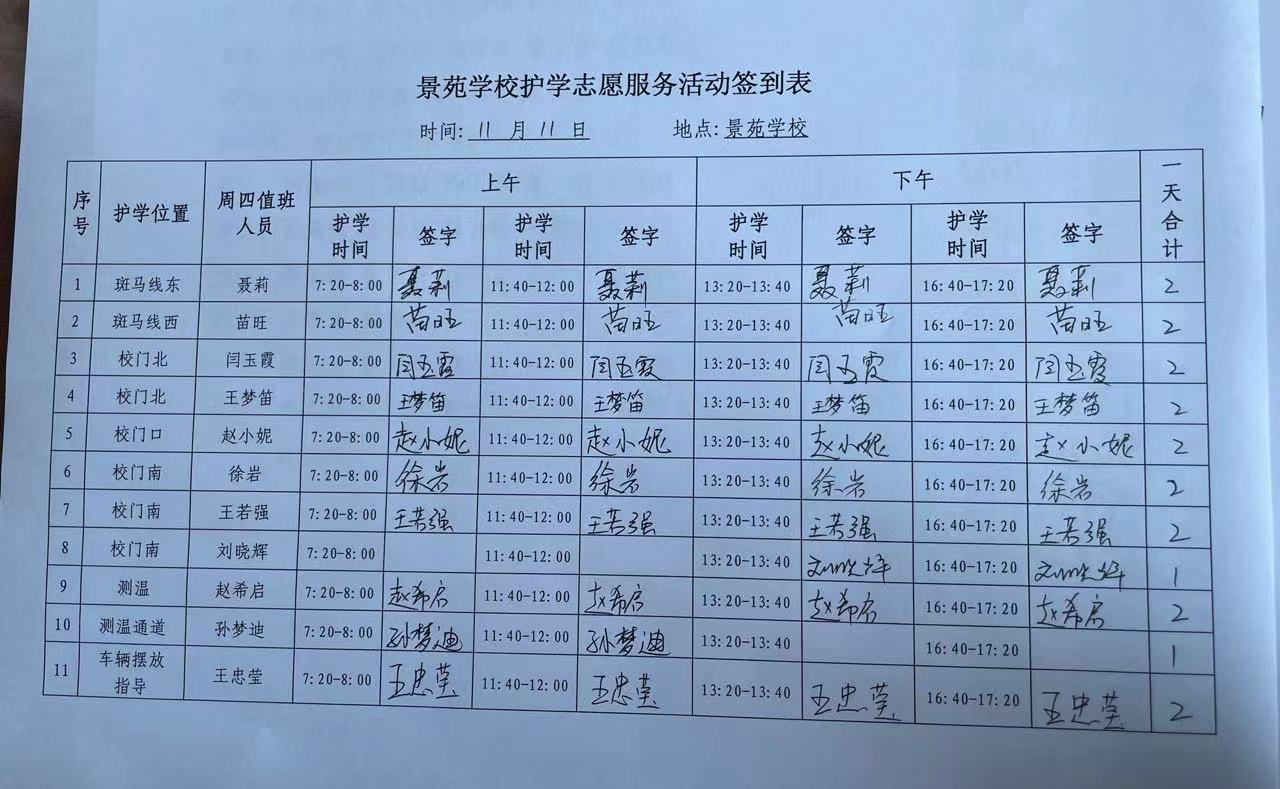 景苑学校护学志愿服务活动签到表
时间: 11 月 11 日 地点: 景苑学校
序号 护学位置 周四值班人员 上午 下午 一天合计
护学时间 签字 护学时间 签字 护学时间 签字 护学时间 签字
1 斑马线东 聂莉 7:20-8:00 聂莉 11:40-12:00 聂莉 13:20-13:40 聂莉 16:40-17:20 聂莉 2
2 斑马线西 苗旺 7:20-8:00 苗旺 11:40-12:00 苗旺 13:20-13:40 苗旺 16:40-17:20 苗旺 2
3 校门北 闫玉霞 7:20-8:00 闫玉霞 11:40-12:00 闫玉霞 13:20-13:40 闫玉霞 16:40-17:20 闫玉霞 2
4 校门北 王梦笛 7:20-8:00 王梦笛 11:40-12:00 王梦笛 13:20-13:40 王梦笛 16:40-17:20 王梦笛 2
5 校门口 赵小妮 7:20-8:00 赵小妮 11:40-12:00 赵小妮 13:20-13:40 赵小妮 16:40-17:20 赵小妮 2
6 校门南 徐岩 7:20-8:00 徐岩 11:40-12:00 徐岩 13:20-13:40 徐岩 16:40-17:20 徐岩 2
7 校门南 王若强 7:20-8:00 王若强 11:40-12:00 王若强 13:20-13:40 王若强 16:40-17:20 王若强 2
8 校门南 刘晓辉 7:20-8:00 11:40-12:00 13:20-13:40 刘晓辉 16:40-17:20 刘晓辉 1
9 测温 赵希启 7:20-8:00 赵希启 11:40-12:00 赵希启 13:20-13:40 赵希启 16:40-17:20 赵希启 2
10 测温通道 孙梦迪 7:20-8:00 孙梦迪 11:40-12:00 孙梦迪 13:20-13:40 16:40-17:20 1
11 车辆摆放指导 王忠莹 7:20-8:00 王忠莹 11:40-12:00 王忠莹 13:20-13:40 王忠莹 16:40-17:20 王忠莹 2